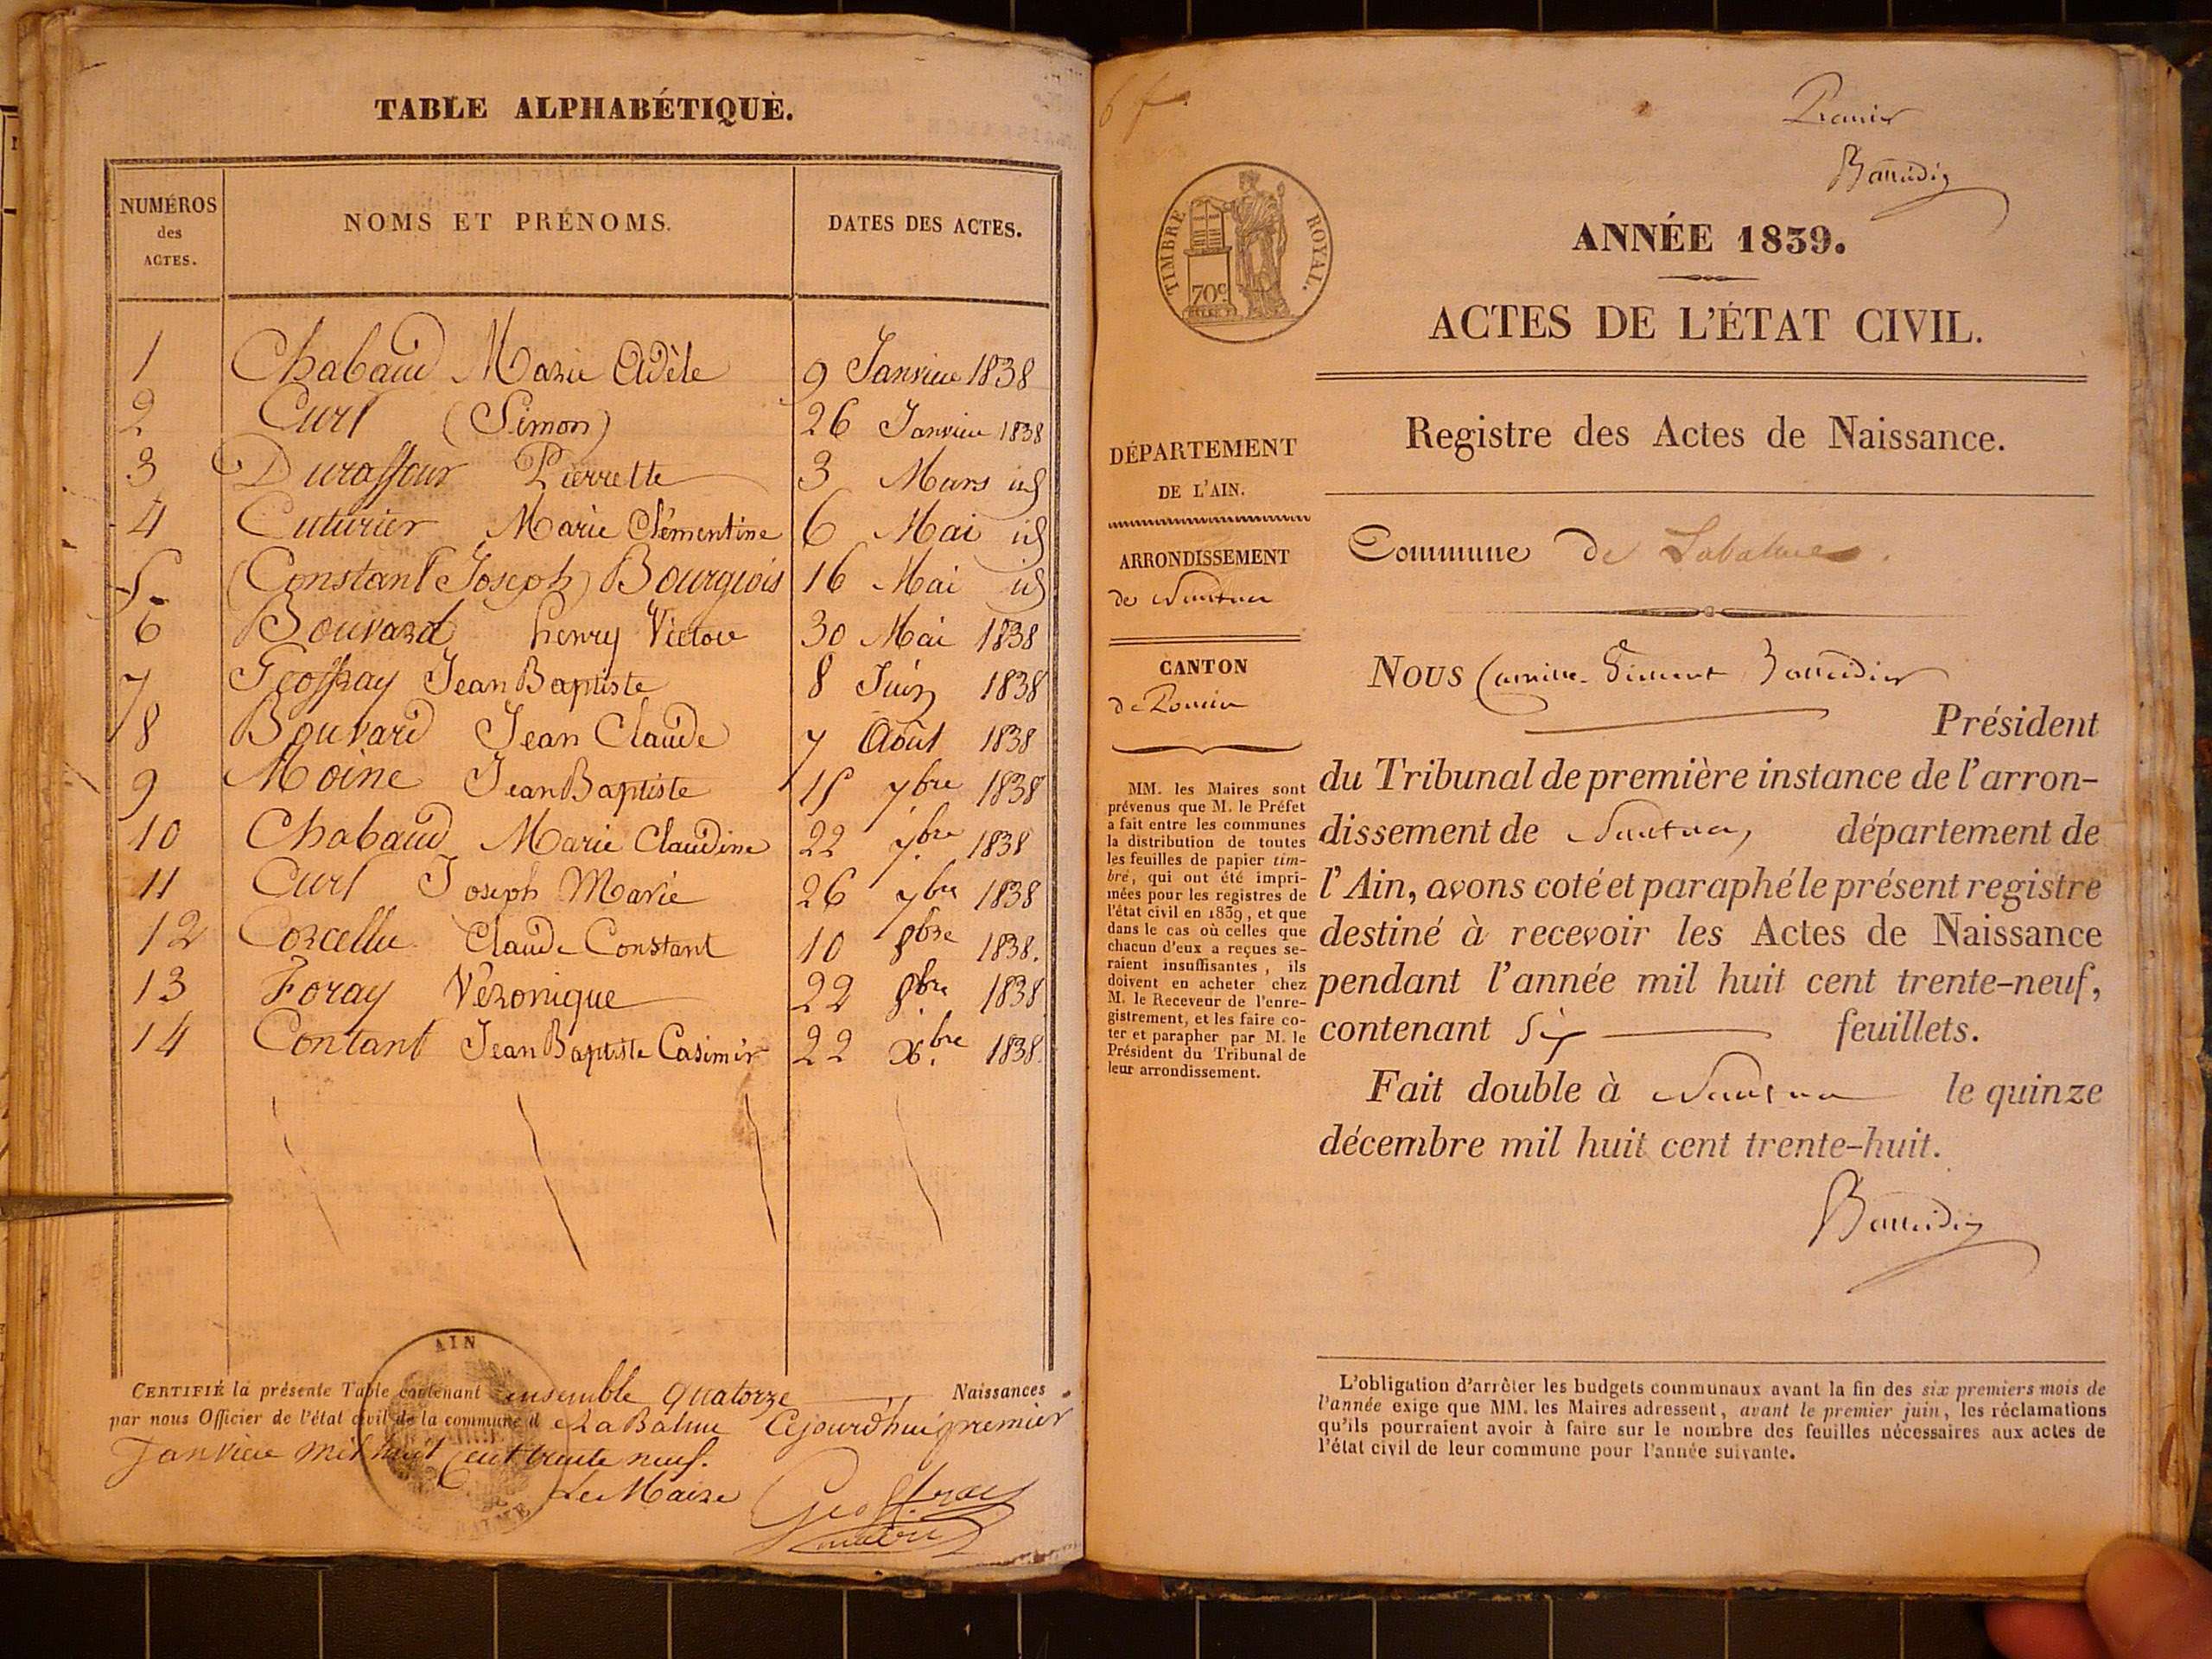 TABLE ALPHABÉTIQUE.
NUMÉROS
des
ACTES.
NOMS ET PRÉNOMS.
DATES DES ACTES.
1 Chabaud Marie Adèle 9 Janvier 1838
2 Curt (Simon) 26 Janvier 1838
3 Duraffour Pierrette 3 Mars id
4 Cuturier Marie Clémentine 6 Mai id
5 (Constant Joseph) Bourgeois 16 Mai id
6 Bouvard henry Victor 30 Mai 1838
7 Geoffray Jean Baptiste 8 Juin 1838
8 Bouvard Jean Claude 7 Août 1838
9 Moine Jean Baptiste 15 7bre 1838
10 Chabaud Marie Claudine 22 7bre 1838
11 Curt Joseph Marie 26 7bre 1838
12 Corcelle Claude Constant 10 8bre 1838.
13 Foray Véronique 22 8bre 1838
14 Contant Jean Baptiste Casimir 22 X.bre 1838.
CERTIFIÉ la présente Table contenant ensemble quatorze Naissances
par nous Officier de l'état civil de la commune d e La Balme Cejourd'hui premier
Janvier mil huit cent trente neuf.
Le Maire
Geoffray
maire
AIN
6 f
Premier
Baudin
TIMBRE ROYAL.
70c
ANNÉE 1839.
ACTES DE L'ÉTAT CIVIL.
Registre des Actes de Naissance.
DÉPARTEMENT
DE L'AIN.
ARRONDISSEMENT
de Nantua
CANTON
de Poncin
MM. les Maires sont
prévenus que M. le Préfet
a fait entre les communes
la distribution de toutes
les feuilles de papier tim-
bré, qui ont été impri-
mées pour les registres de
l'état civil en 1839, et que
dans le cas où celles que
chacun d'eux a reçues se-
raient insuffisantes, ils
doivent en acheter chez
M. le Receveur de l'enre-
gistrement, et les faire co-
ter et parapher par M. le
Président du Tribunal de
leur arrondissement.
Commune de Labalme.
NOUS Camille-Vincent
Président
du Tribunal de première instance de l'arron-
dissement de Nantua, département de
l'Ain, avons coté et paraphé le présent registre
destiné à recevoir les Actes de Naissance
pendant l'année mil huit cent trente-neuf,
contenant Six feuillets.
Fait double à Nantua le quinze
décembre mil huit cent trente-huit.
L'obligation d'arrêter les budgets communaux avant la fin des six premiers mois de
l'année exige que MM. les Maires adressent, avant le premier juin, les réclamations
qu'ils pourraient avoir à faire sur le nombre des feuilles nécessaires aux actes de
l'état civil de leur commune pour l'année suivante.